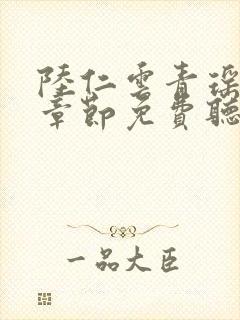 陸仁雲青瑶
章節免費聽
一品大臣